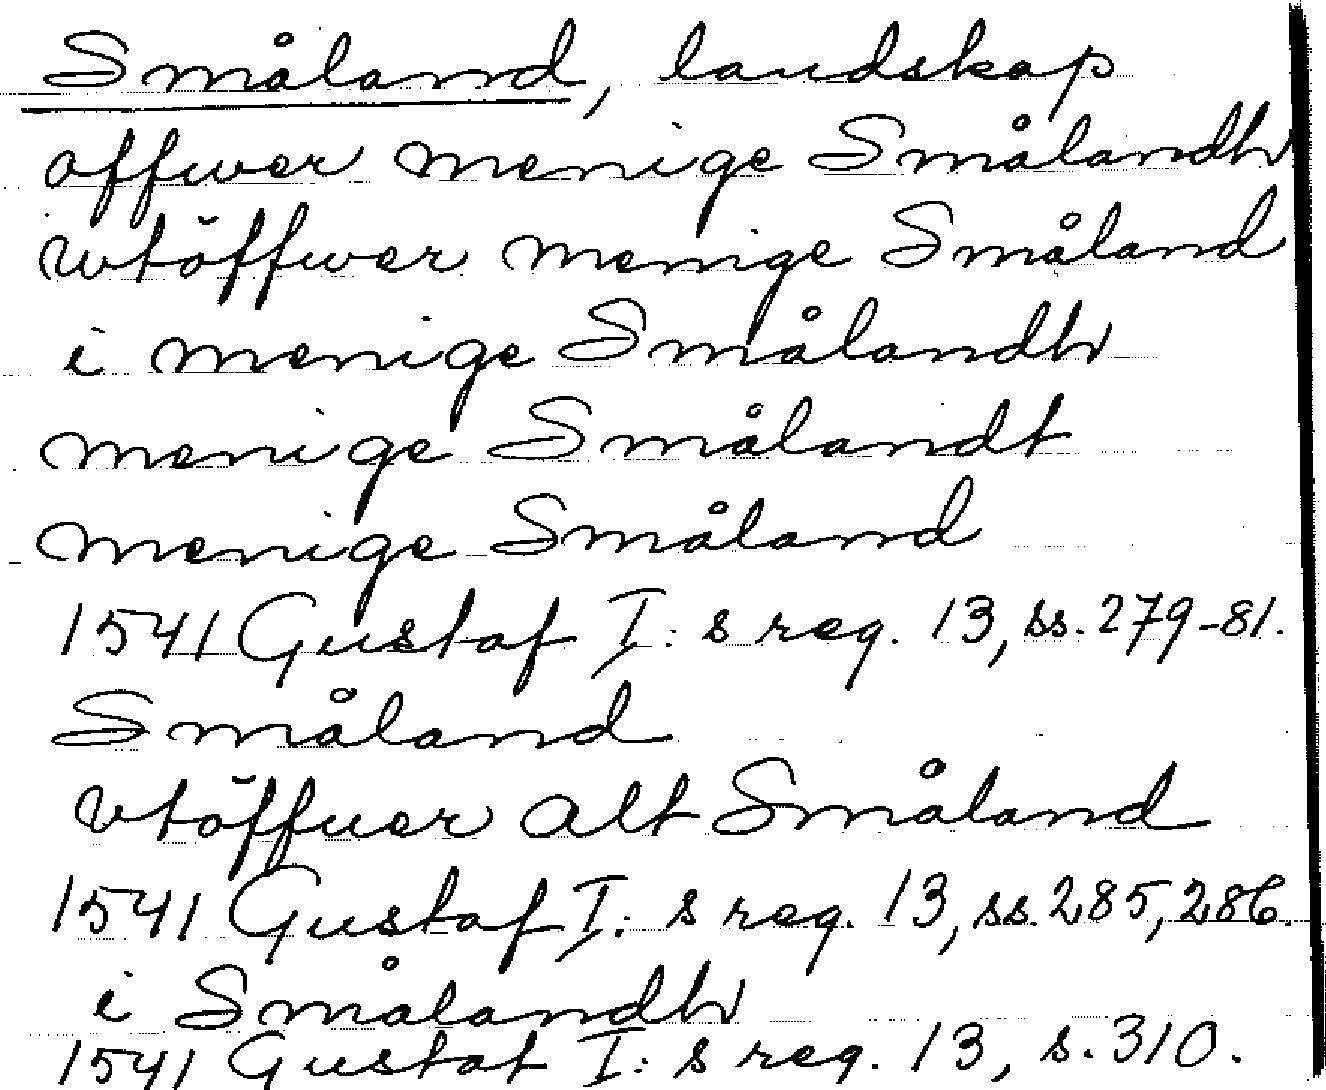 Småland, landskap
offwer menige Smålandh
wtöffwer menige Småland
i menige Smålandh
menige Smålandt
menige Småland
1541 Gustaf I: s reg. 13, ss. 279-81.
Småland
vtöffuer alt Småland
1541 Gustaf I: s reg. 13, ss. 285, 286.
i Smålandh
1541 Gustaf I: s reg. 13, s. 310.